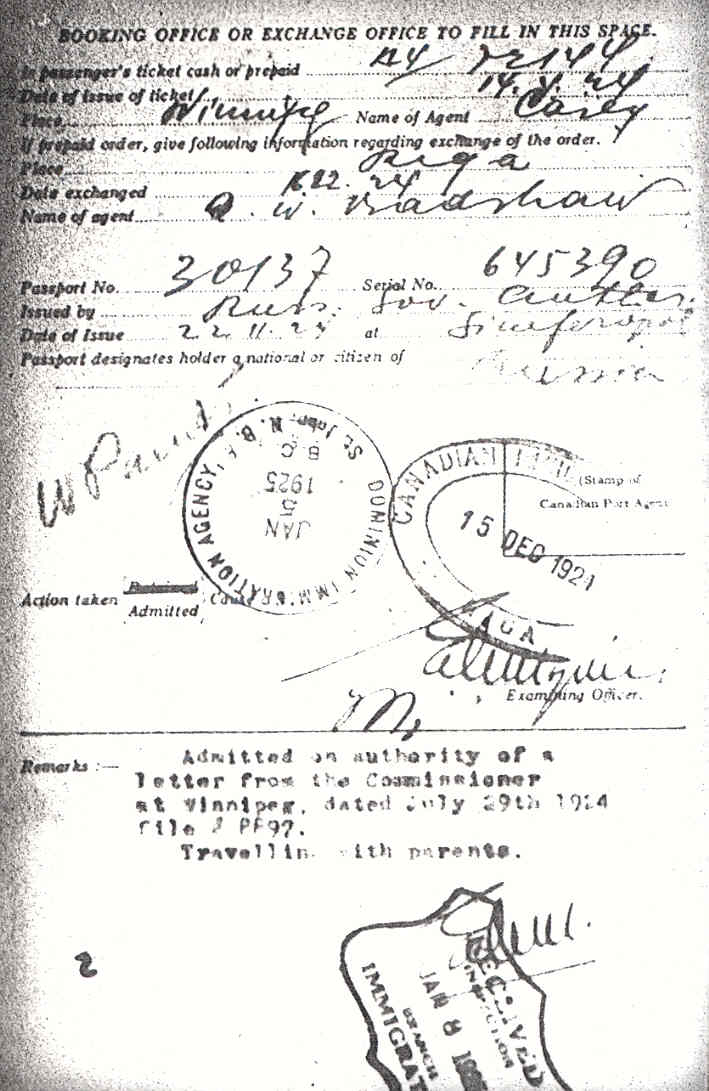 BOOKING OFFICE OR EXCHANGE OFFICE TO FILL IN THIS SPACE.
In passenger's ticket cash or prepaid
Date of issue of ticket 14. 4. 24
Place Winnipeg Name of Agent Casey
If prepaid order, give following information regarding exchange of the order.
Place Riga
Date exchanged 22. 24
Name of agent W. Bradshaw
Passport No. 30137 Serial No. 645390
Issued by Russ. Sov. Author.
Date of Issue 22. 11. 24 at Simferopol
Passport designates holder a national or citizen of Russia
DOMINION IMMIGRATION AGENCY, St. John, N.B.
B.C.
JAN
5
1925
CANADIAN
15 DEC 1924
(Stamp of
Canadian Port Agent
Action taken Admitted Cause
Examining Officer.
Remarks :— Admitted on authority of a
letter from the Commissioner
at Winnipeg, dated July 29th 1924
file # PF97.
Travelling with parents.
2
RECEIVED
INSPECTION
JAN 8
BRANCH
IMMIGRAT